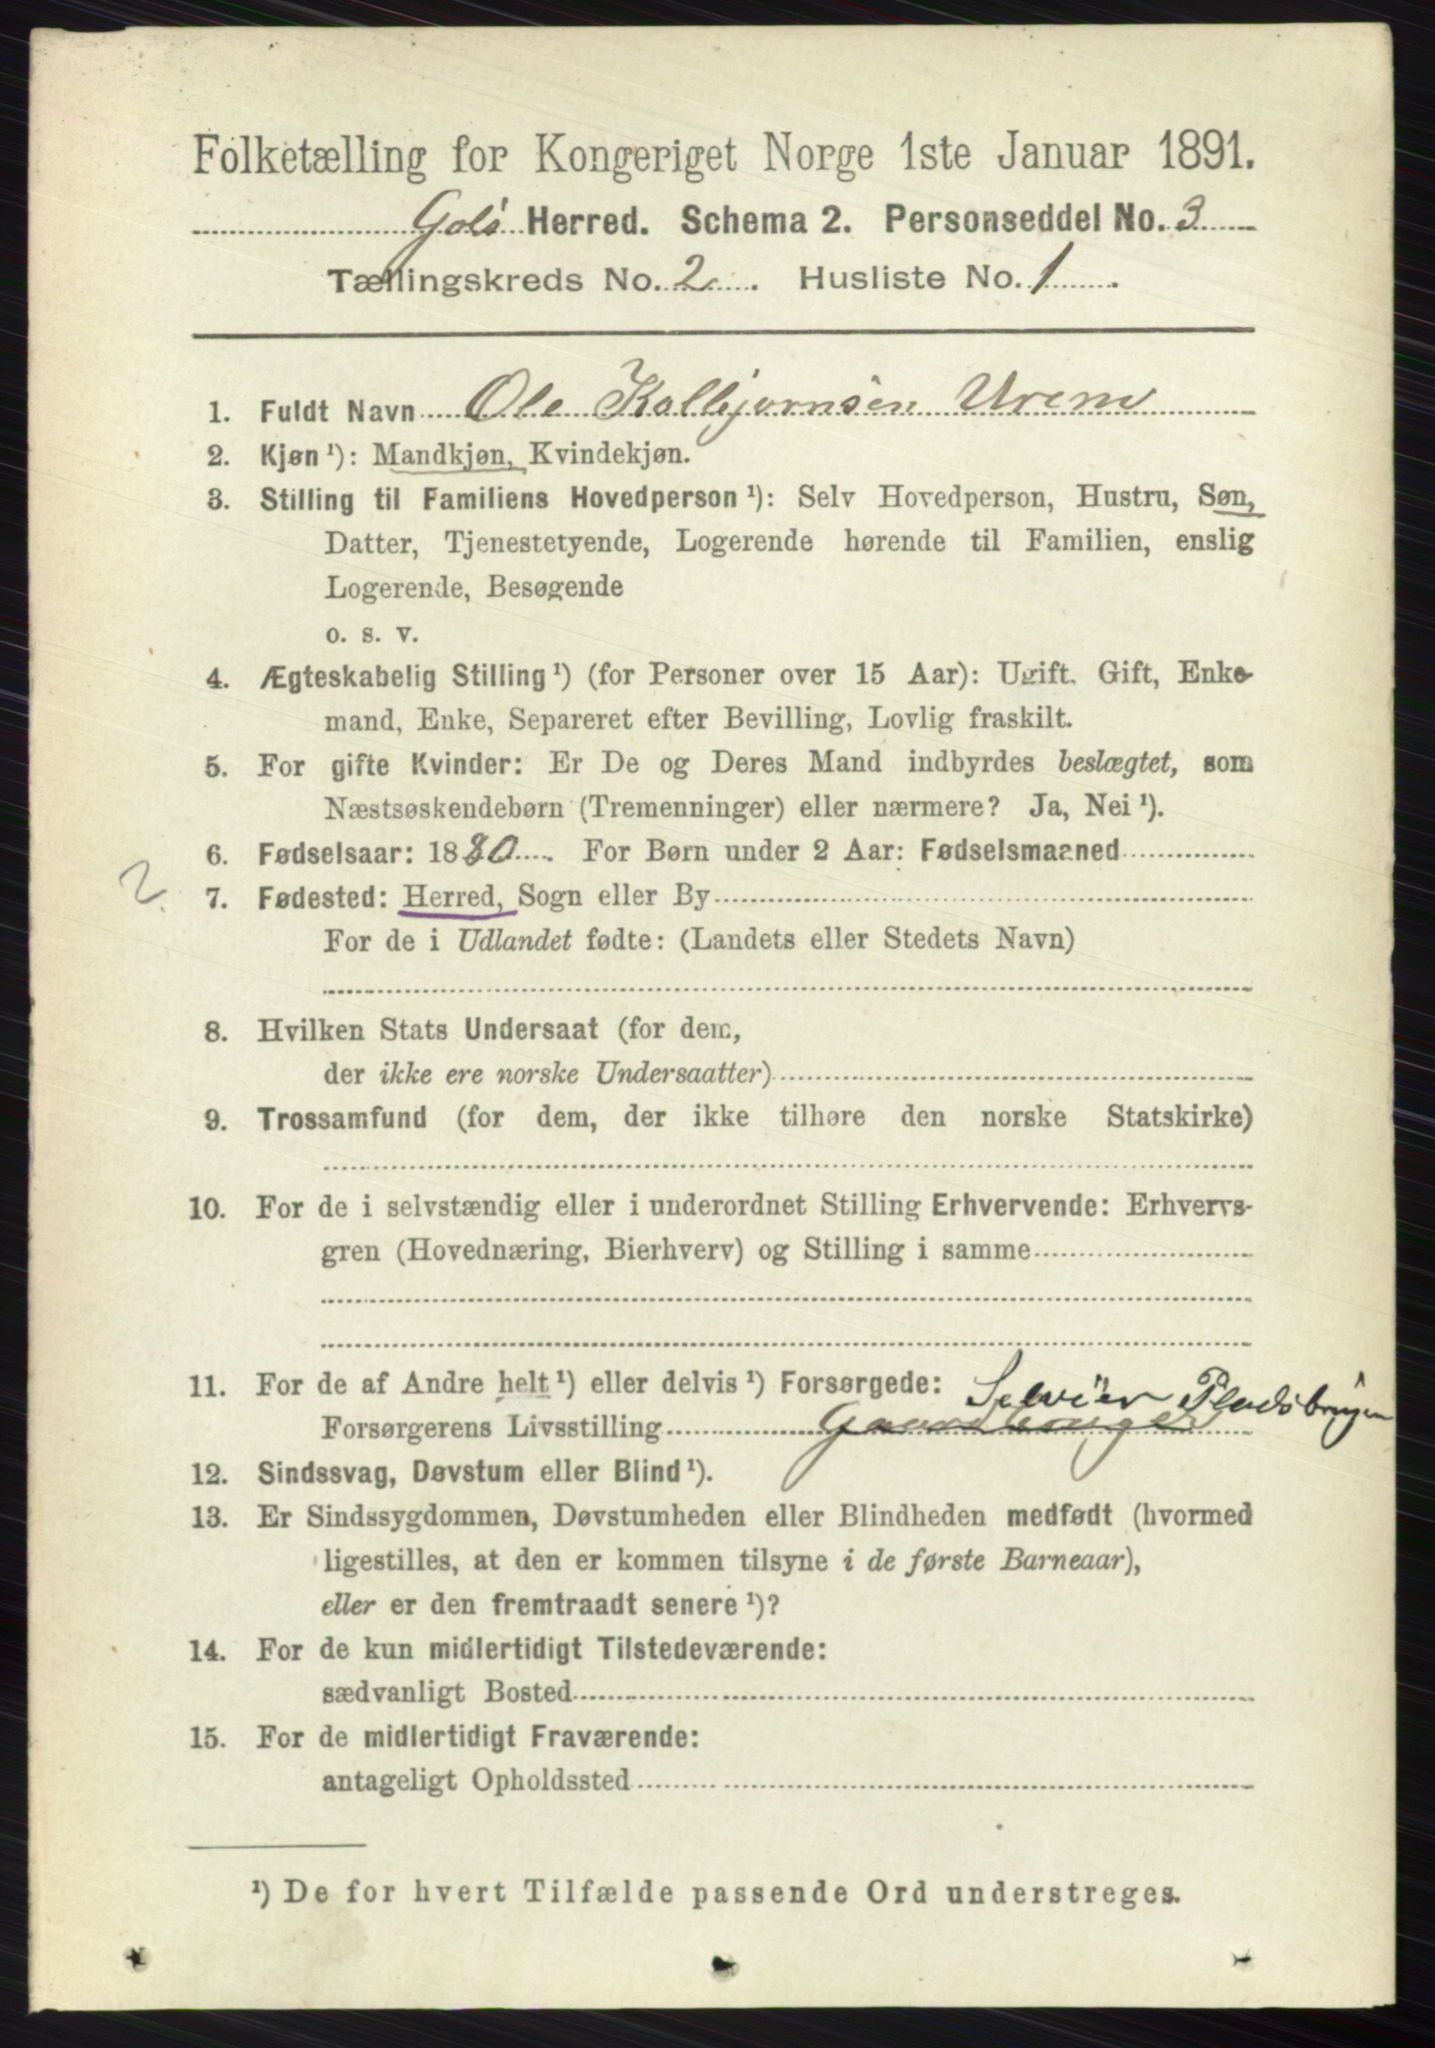 Folketælling for Kongeriget Norge 1ste Januar 1891.
Gols Herred. Schema 2. Personseddel No. 3
Tællingskreds No. 2. Husliste No. 1.
1. Fuldt Navn Ole Kolbjørnsen Urem
2. Kjøn ¹): Mandkjøn, Kvindekjøn.
3. Stilling til Familiens Hovedperson ¹): Selv Hovedperson, Hustru, Søn,
Datter, Tjenestetyende, Logerende hørende til Familien, enslig
Logerende, Besøgende
o. s. v.
4. Ægteskabelig Stilling ¹) (for Personer over 15 Aar): Ugift. Gift, Enke-
mand, Enke, Separeret efter Bevilling, Lovlig fraskilt.
5. For gifte Kvinder: Er De og Deres Mand indbyrdes beslægtet, som
Næstsøskendebørn (Tremenninger) eller nærmere? Ja, Nei ¹).
6. Fødselsaar: 1880. For Børn under 2 Aar: Fødselsmaaned
2. 7. Fødested: Herred, Sogn eller By
For de i Udlandet fødte: (Landets eller Stedets Navn)
8. Hvilken Stats Undersaat (for dem,
der ikke ere norske Undersaatter)
9. Trossamfund (for dem, der ikke tilhøre den norske Statskirke)
10. For de i selvstændig eller i underordnet Stilling Erhvervende: Erhvervs-
gren (Hovednæring, Bierhverv) og Stilling i samme
11. For de af Andre helt ¹) eller delvis ¹) Forsørgede: Selveier Pladsbruger
Forsørgerens Livsstilling Gaardbruger
12. Sindssvag, Døvstum eller Blind ¹).
13. Er Sindssygdommen, Døvstumheden eller Blindheden medfødt (hvormed
ligestilles, at den er kommen tilsyne i de første Barneaar),
eller er den fremtraadt senere ¹)?
14. For de kun midlertidigt Tilstedeværende:
sædvanligt Bosted
15. For de midlertidigt Fraværende:
antageligt Opholdssted
¹) De for hvert Tilfælde passende Ord understreges.